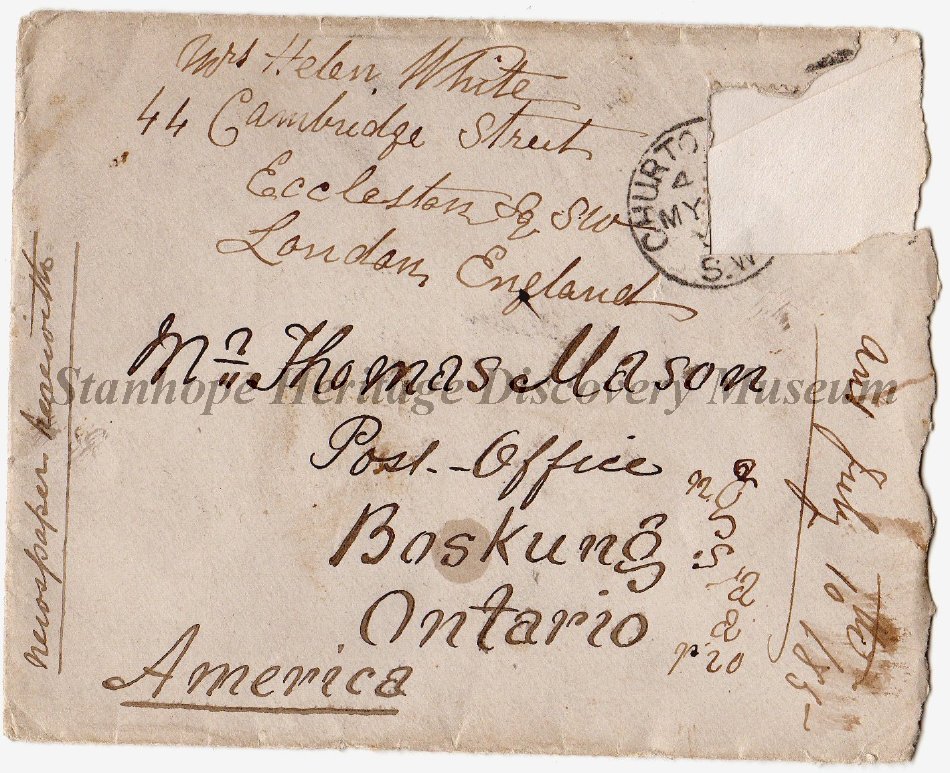 Mrs Helen White
44 Cambridge Street
Eccleston Sq SW
London, England
CHURTO
A
MY
S.W
Mr Thomas Mason
Stanhope Heritage Discovery Museum
Post-Office
Boskung
Ontario
America
newspaper herewith
July 10